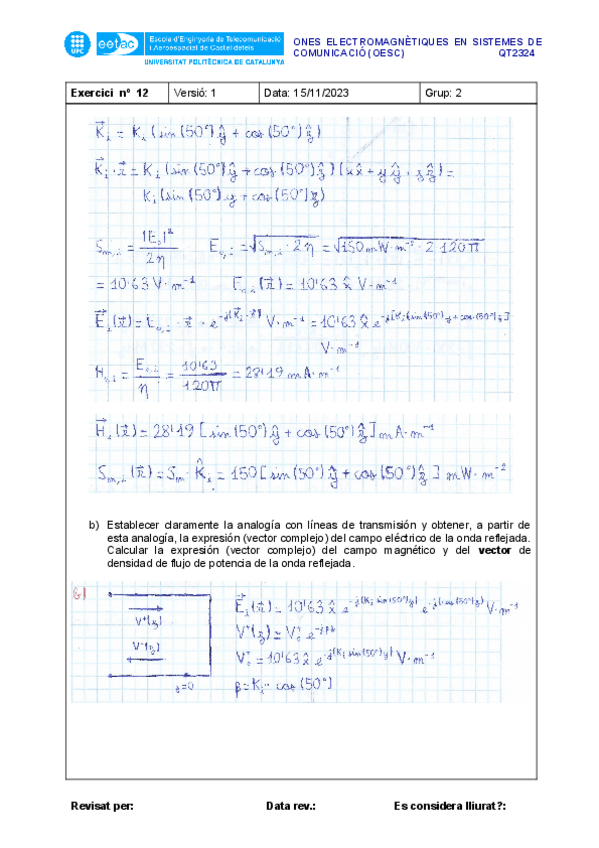 UPC
eetac
Escola d'Enginyeria de Telecomunicació
i Aeroespacial de Castelldefels
UNIVERSITAT POLITÈCNICA DE CATALUNYA
ONES ELECTROMAGNÈTIQUES EN SISTEMES DE
COMUNICACIÓ (OESC) QT2324
Exercici nº 12 Versió: 1 Data: 15/11/2023 Grup: 2
K⃗i = Ki (sin(50°)ŷ + cos(50°)ẑ)
K⃗i · r⃗ = Ki (sin(50°)ŷ + cos(50°)ẑ)(xx̂ + yŷ + zẑ) =
Ki (sin(50°)y + cos(50°)z)
Sm,i = |E0|²/2η E0,i = √(Sm,i · 2η) = √(150 mW·m⁻² · 2·120π)
= 10'63 V·m⁻¹ E0,i(r⃗) = 10'63 x̂ V·m⁻¹
E⃗i(r⃗) = E0,i · x̂ · e^-j(K⃗i·r⃗) V·m⁻¹ = 10'63 x̂ e^-j[Ki(sin(50°)y + cos(50°)z]
V·m⁻¹
H0,i = E0,i/η = 10'63/120π = 28'19 mA·m⁻¹
H⃗i(r⃗) = 28'19 [sin(50°)ŷ + cos(50°)ẑ] mA·m⁻¹
Sm,i(r⃗) = Sm · K̂i = 150 [sin(50°)ŷ + cos(50°)ẑ] mW·m⁻²
b) Establecer claramente la analogía con líneas de transmisión y obtener, a partir de
esta analogía, la expresión (vector complejo) del campo eléctrico de la onda reflejada.
Calcular la expresión (vector complejo) del campo magnético y del vector de
densidad de flujo de potencia de la onda reflejada.
b)
V⁺(z)
V⁻(z)
z=0
E⃗i(r⃗) = 10'63 x̂ e^-j(Ki sin(50°)y) e^-j(cos(50°)z) V·m⁻¹
V⁺(z) = V0⁺ e^-jβz
V0⁺ = 10'63 x̂ e^-j(Ki sin(50°)y) V·m⁻¹
β = Ki · cos(50°)
Revisat per: Data rev.: Es considera lliurat?: